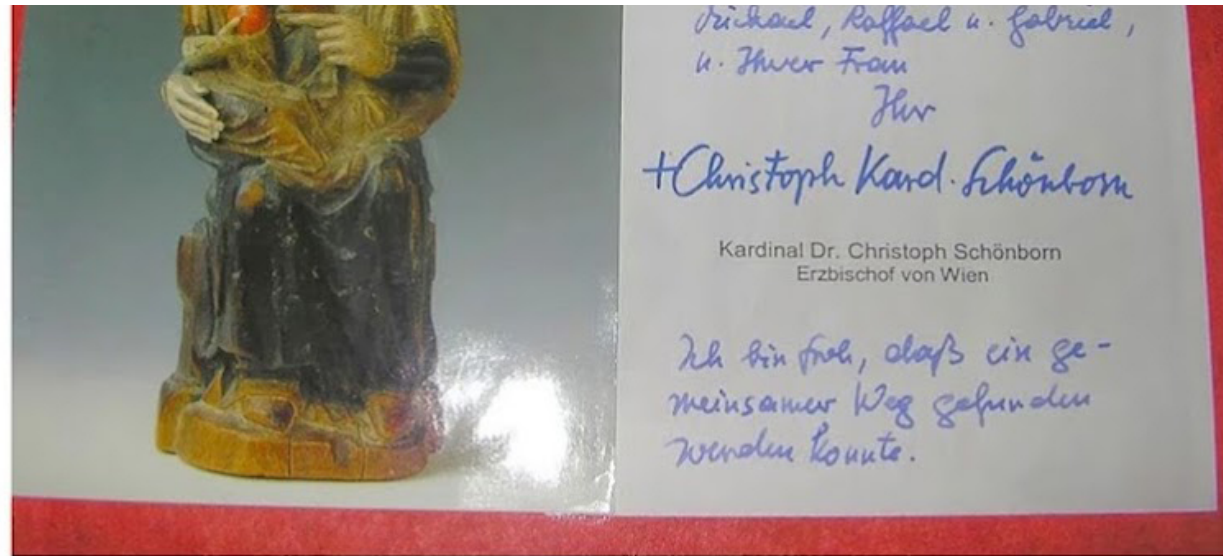 Michael, Raffael u. Gabriel,
u. Ihrer Frau
Ihr
+Christoph Kard. Schönborn
Kardinal Dr. Christoph Schönborn
Erzbischof von Wien
Ich bin froh, daß ein ge-
meinsamer Weg gefunden
werden konnte.